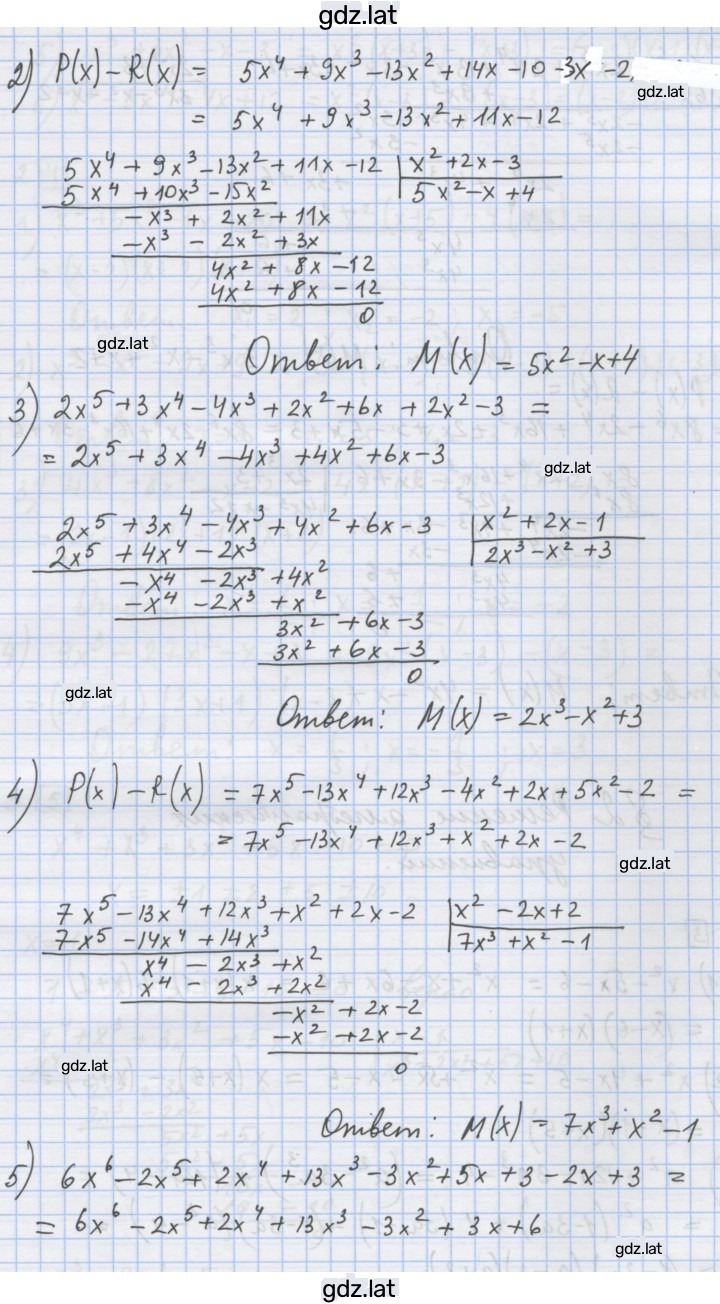 gdz.lat
2) P(x) - R(x) = 5x⁴ + 9x³ - 13x² + 14x - 10 - 3x - 2
gdz.lat
= 5x⁴ + 9x³ - 13x² + 11x - 12
5x⁴ + 9x³ - 13x² + 11x - 12 | x² + 2x - 3
5x⁴ + 10x³ - 15x² | 5x² - x + 4
- x³ + 2x² + 11x
- x³ - 2x² + 3x
4x² + 8x - 12
4x² + 8x - 12
0
gdz.lat
Ответ: M(x) = 5x² - x + 4
3) 2x⁵ + 3x⁴ - 4x³ + 2x² + 6x + 2x² - 3 =
= 2x⁵ + 3x⁴ - 4x³ + 4x² + 6x - 3
gdz.lat
2x⁵ + 3x⁴ - 4x³ + 4x² + 6x - 3 | x² + 2x - 1
2x⁵ + 4x⁴ - 2x³ | 2x³ - x² + 3
- x⁴ - 2x³ + 4x²
- x⁴ - 2x³ + x²
3x² + 6x - 3
3x² + 6x - 3
0
gdz.lat
Ответ: M(x) = 2x³ - x² + 3
4) P(x) - R(x) = 7x⁵ - 13x⁴ + 12x³ - 4x² + 2x + 5x² - 2 =
= 7x⁵ - 13x⁴ + 12x³ + x² + 2x - 2
gdz.lat
7x⁵ - 13x⁴ + 12x³ + x² + 2x - 2 | x² - 2x + 2
7x⁵ - 14x⁴ + 14x³ | 7x³ + x² - 1
x⁴ - 2x³ + x²
x⁴ - 2x³ + 2x²
- x² + 2x - 2
- x² + 2x - 2
0
gdz.lat
Ответ: M(x) = 7x³ + x² - 1
5) 6x⁶ - 2x⁵ + 2x⁴ + 13x³ - 3x² + 5x + 3 - 2x + 3 =
= 6x⁶ - 2x⁵ + 2x⁴ + 13x³ - 3x² + 3x + 6
gdz.lat
gdz.lat